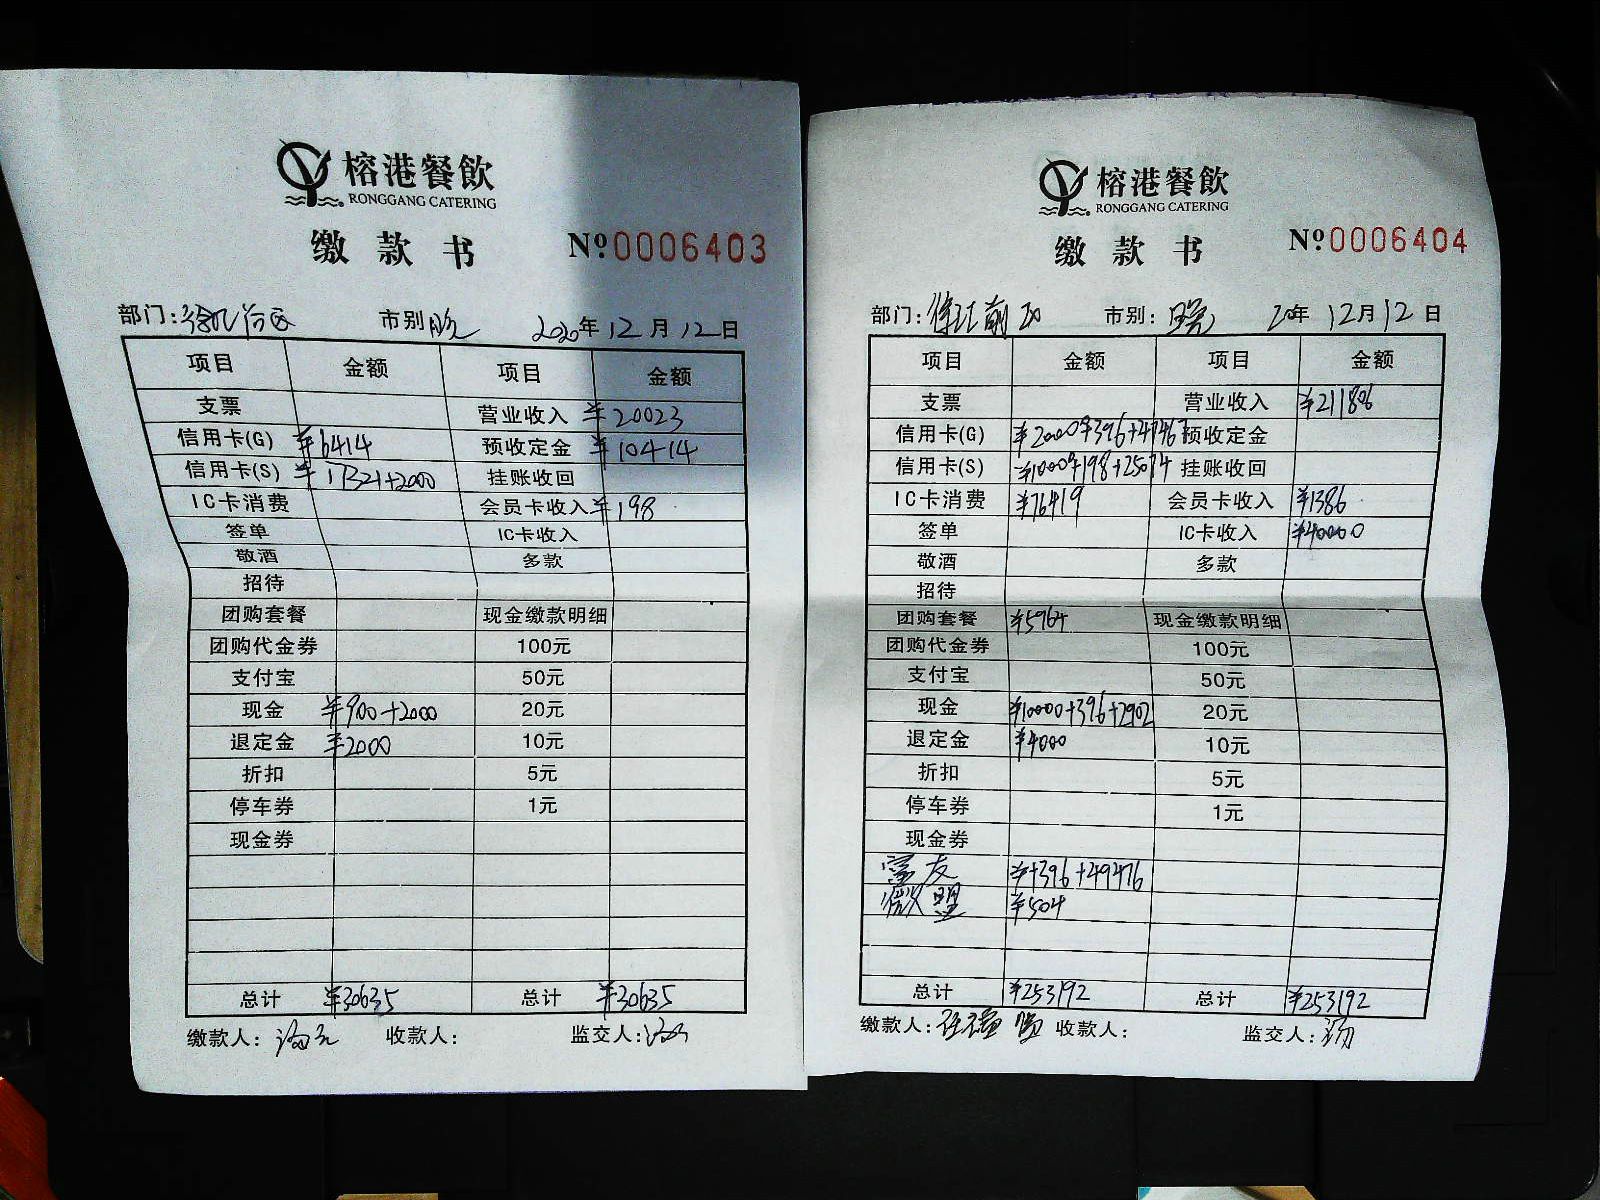 榕港餐飲
RONGGANG CATERING
缴款书 Nº0006403
部门: 市别 晚 2020年12月12日
项目 金额 项目 金额
支票 营业收入 ¥20023
信用卡(G) ¥6414 预收定金 ¥10414
信用卡(S) ¥17321+2000 挂账收回
IC卡消费 会员卡收入 ¥198
签单 IC卡收入
敬酒 多款
招待
团购套餐 现金缴款明细
团购代金券 100元
支付宝 50元
现金 ¥900+2000 20元
退定金 ¥2000 10元
折扣 5元
停车券 1元
现金券
总计 ¥30635 总计 ¥30635
缴款人: 收款人: 监交人:
榕港餐飲
RONGGANG CATERING
缴款书 Nº0006404
部门: 徐汇 市别: 晚 20年12月12日
项目 金额 项目 金额
支票 营业收入 ¥211806
信用卡(G) ¥2000+396+47467 预收定金
信用卡(S) ¥10000+198+25074 挂账收回
IC卡消费 ¥76419 会员卡收入 ¥1386
签单 IC卡收入 ¥40000
敬酒 多款
招待
团购套餐 ¥5964 现金缴款明细
团购代金券 100元
支付宝 50元
现金 ¥10000+396+2902 20元
退定金 ¥4000 10元
折扣 5元
停车券 1元
现金券
富友 ¥+396+49476
微盟 ¥504
总计 ¥253192 总计 ¥253192
缴款人: 收款人: 监交人: